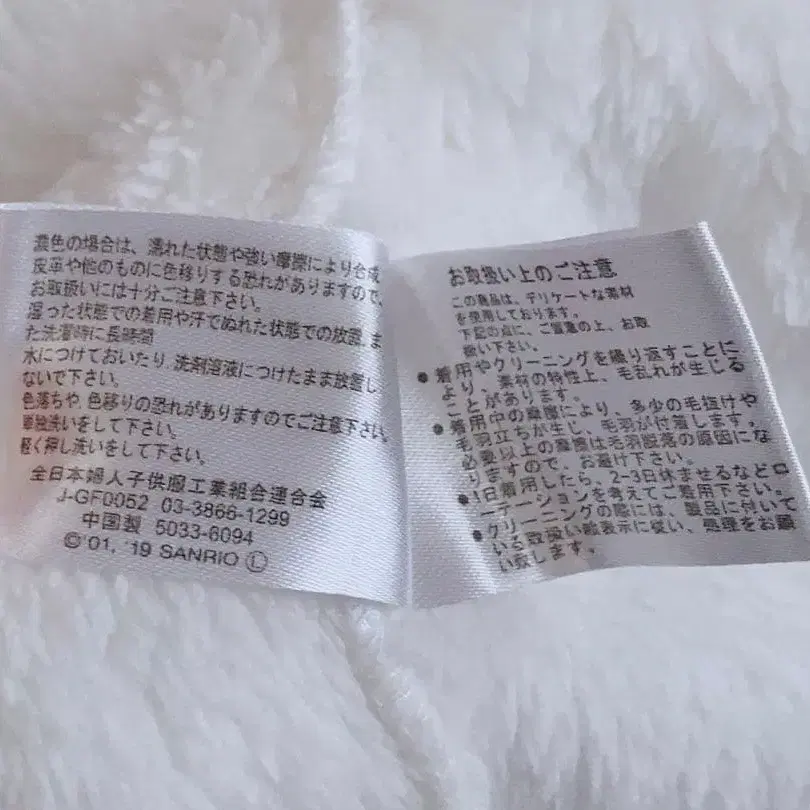 濃色の場合は、濡れた状態や強い摩擦により合成
皮革や他のものに色移りする恐れがありますので、
お取扱いには十分ご注意下さい。
湿った状態での着用や汗でぬれた状態での放置、ま
た洗濯時に長時間
水につけておいたり、洗剤溶液につけたまま放置し
ないで下さい。
色落ちや、色移りの恐れがありますのでご注意下さい。
単独洗いをして下さい。
軽く押し洗いをして下さい。
全日本婦人子供服工業組合連合会
J-GF0052 03-3866-1299
中国製 5033-6094
©'01, '19 SANRIO Ⓛ
お取扱い上のご注意
この商品は、デリケートな素材
を使用しております。
下記の点に、ご留意の上、お取
扱い下さい。
●着用やクリーニングを繰り返すことに
より、素材の特性上、毛乱れが生じる
ことがあります。
●着用中の摩擦により、多少の毛抜けや
毛羽立ちが生じ、毛羽が付着します。
必要以上の摩擦は毛羽脱落の原因にな
りますので、お避け下さい。
●1日着用したら、2-3日休ませるなどロ
ーテーションを考えてご着用下さい。
●クリーニングの際には、製品に付いて
いる取扱い絵表示に従い、処理をお願
い致します。